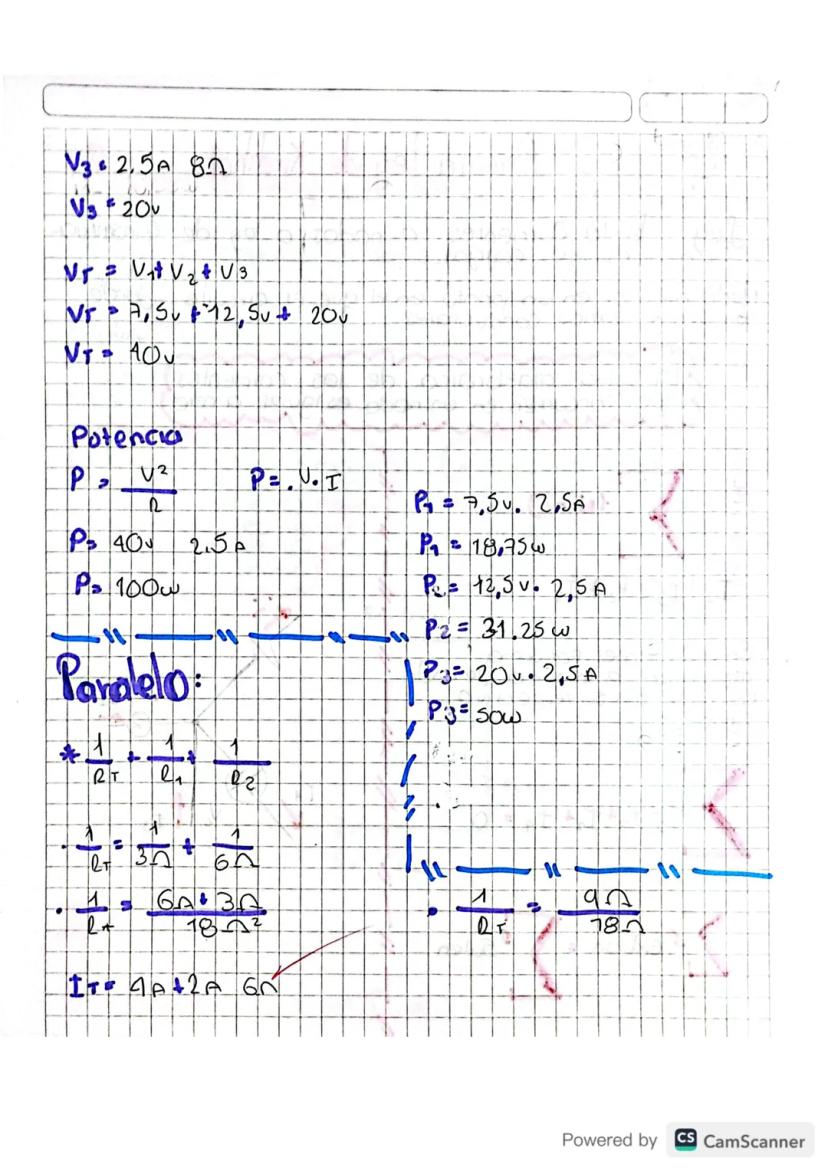 V3 = 2,5A 8Ω
V3 = 20v
VT = V1 + V2 + V3
VT = 7,5v + 12,5v + 20v
VT = 40v
Potencia
P = V² / R    P = . V . I
P = 40v 2,5A
P = 100w
P1 = 7,5v . 2,5A
P1 = 18,75w
P2 = 12,5v . 2,5A
P2 = 31.25w
P3 = 20v . 2,5A
P3 = 50w
Paralelo:
* 1/RT + 1/R1 + 1/R2
. 1/RT = 1/3Ω + 1/6Ω
. 1/RT = 6Ω + 3Ω / 18Ω²
. 1/RT = 9Ω / 18Ω
IT = 4A + 2A 6Ω
Powered by CS CamScanner